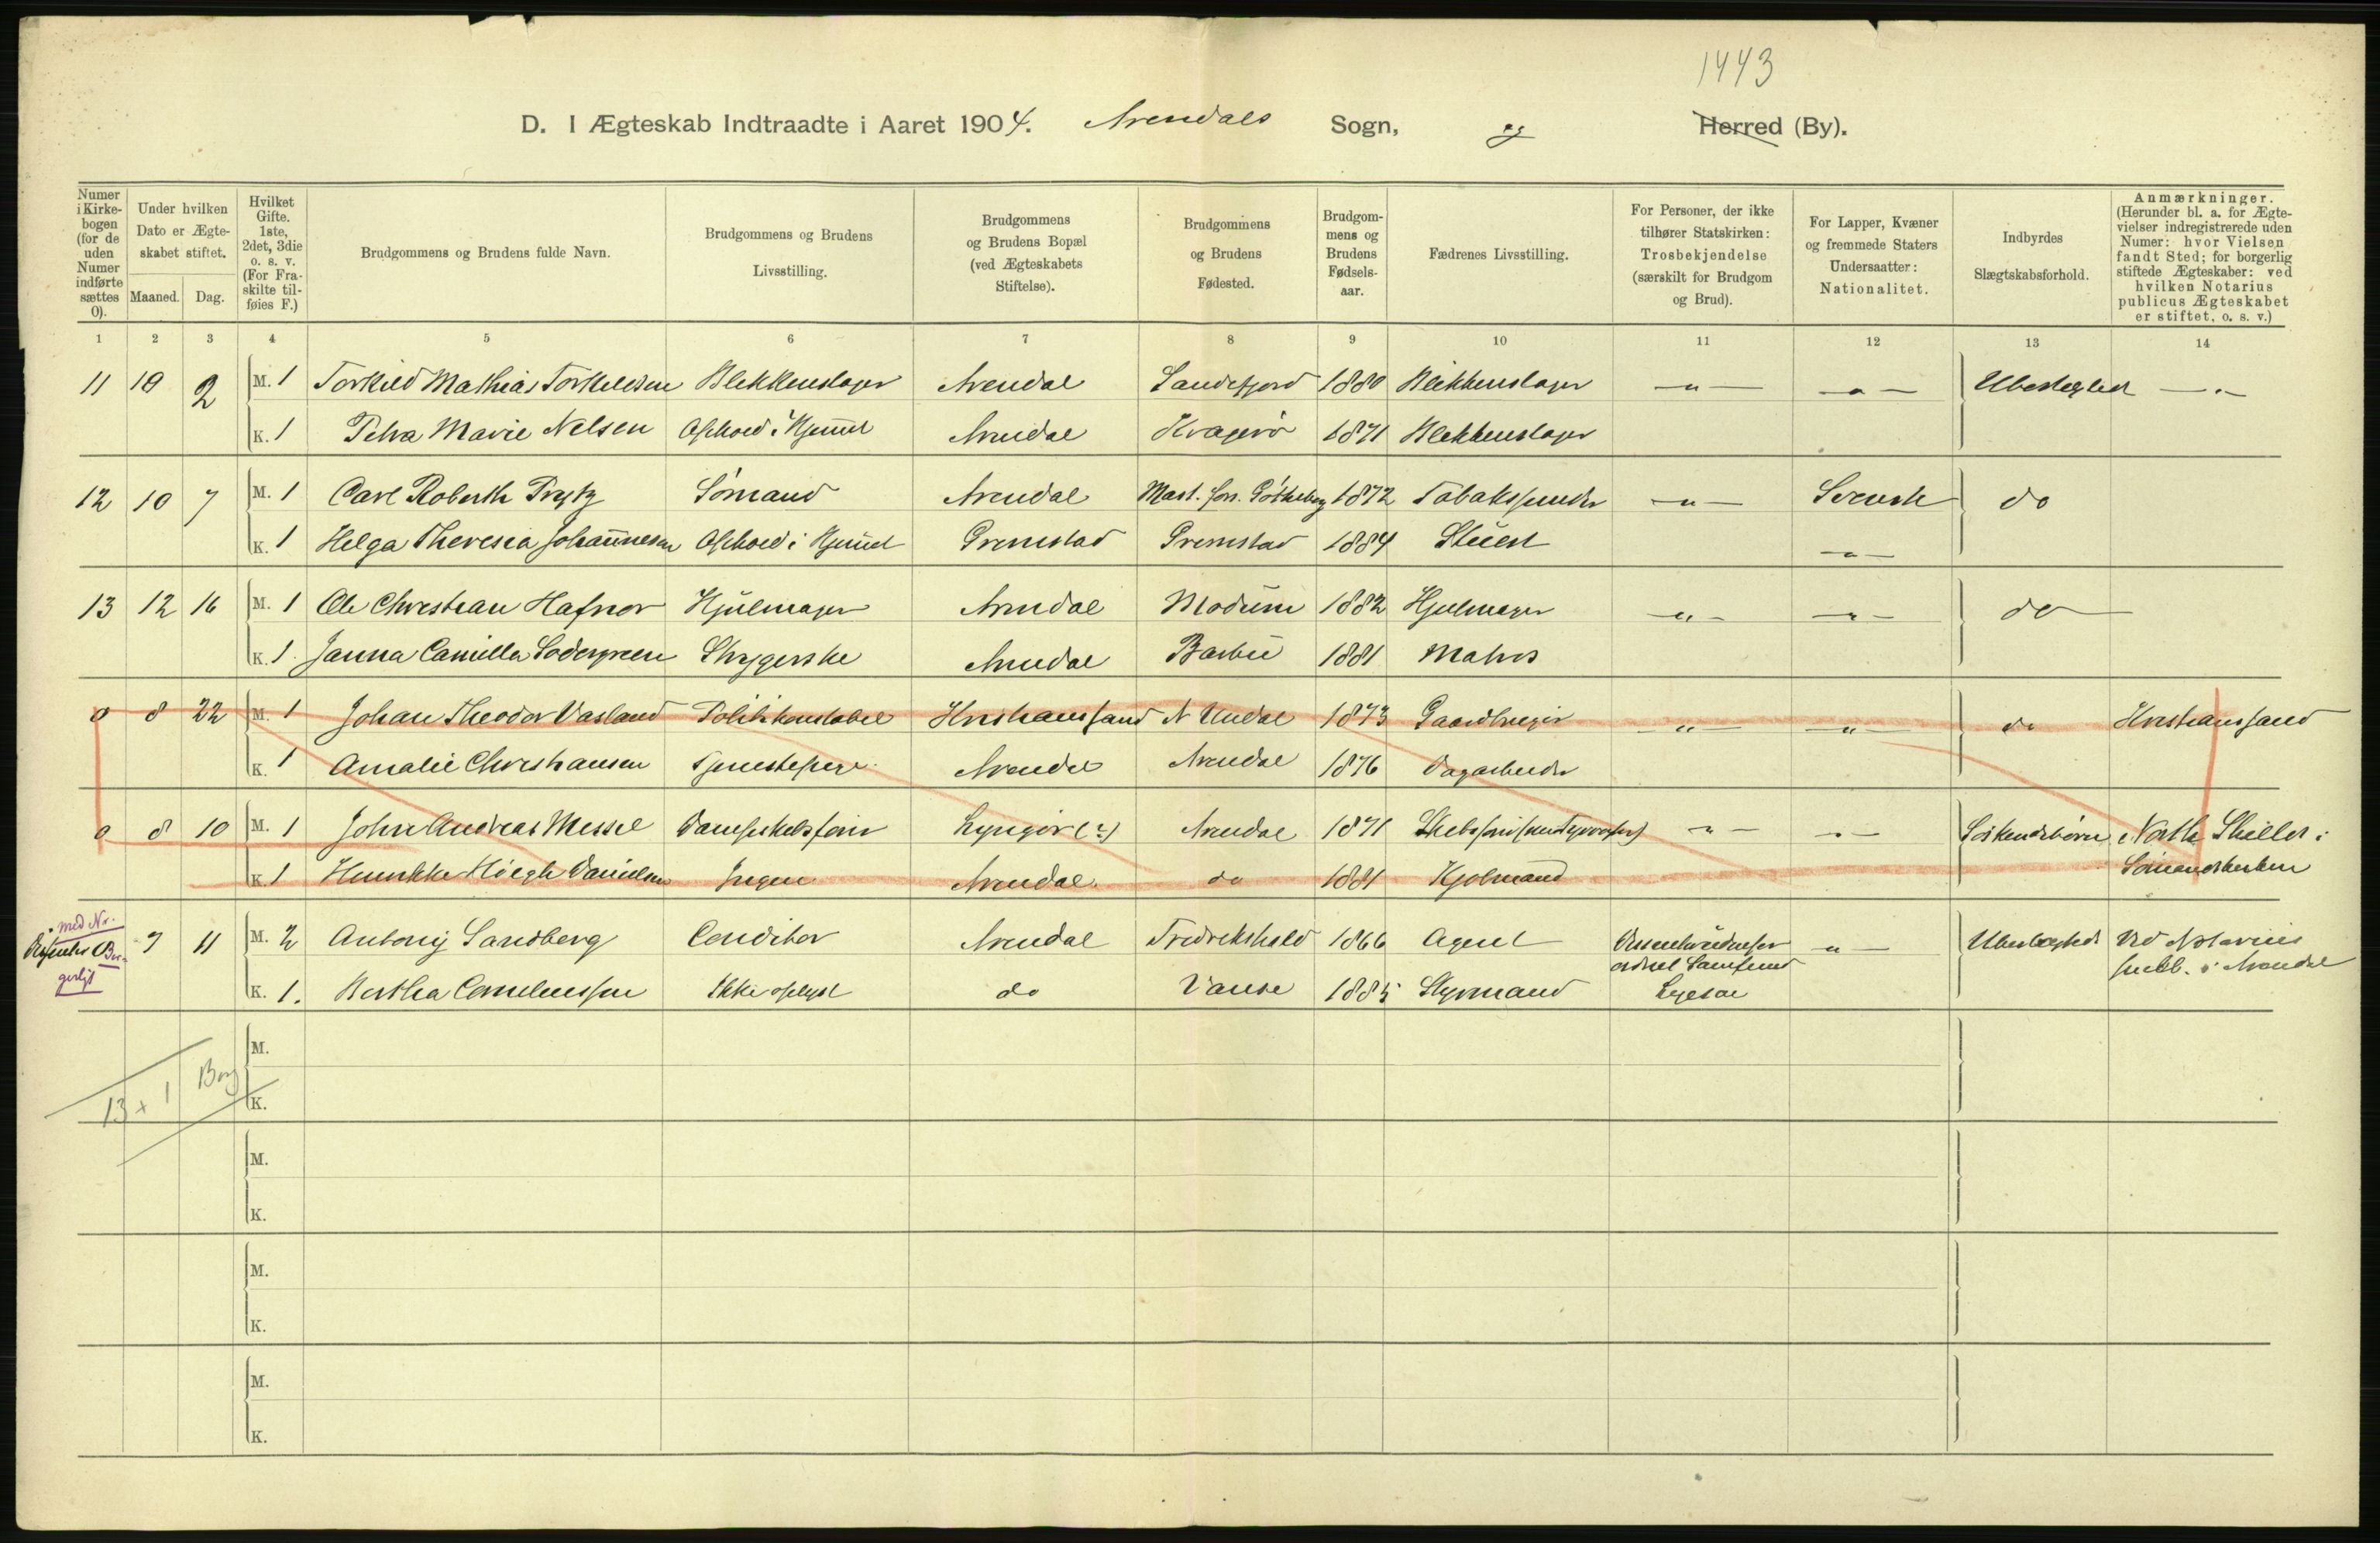 1443
D. I Ægteskab Indtraadte i Aaret 1904. Arendals Sogn, og Herred (By).
Numer i Kirkebogen (for de uden Numer indførte sættes 0).
Under hvilken Dato er Ægteskabet stiftet.
Maaned. Dag.
Hvilket Gifte. 1ste, 2det, 3die o. s. v. (For Fraskilte tilføies F.)
Brudgommens og Brudens fulde Navn.
Brudgommens og Brudens Livsstilling.
Brudgommens og Brudens Bopæl (ved Ægteskabets Stiftelse).
Brudgommens og Brudens Fødested.
Brudgommens og Brudens Fødselsaar.
Fædrenes Livsstilling.
For Personer, der ikke tilhører Statskirken: Trosbekjendelse (særskilt for Brudgom og Brud).
For Lapper, Kvæner og fremmede Staters Undersaatter: Nationalitet.
Indbyrdes Slægtskabsforhold.
Anmærkninger. (Herunder bl. a. for Ægtevielser indregistrerede uden Numer: hvor Vielsen fandt Sted; for borgerlig stiftede Ægteskaber: ved hvilken Notarius publicus Ægteskabet er stiftet, o. s. v.)
1 2 3 4 5 6 7 8 9 10 11 12 13 14
11 10 2 M. 1 Torkild Mathias Torkildsen Blikkenslager Arendal Sandefjord 1880 Blikkenslager — " — — " — Ubeslegted — " —
K. 1 Petra Marie Nelsen Arendal Kragerø 1871 Blikkenslager
12 10 7 M. 1 Carl Roberth Sømand Arendal 1872 — " — Svensk do
K. 1 Helga Theresia Johannesen Grimstad Grimstad 1884 — " —
13 12 16 M. 1 Ole Christian Hafnor Hjulmager Arendal Modum 1882 Hjulmager — " — — " — do
K. 1 Janna Camilla Sodergreen Strygerske Arendal Barbu 1881 Matros
0 8 22 M. 1 Johan Theodor Vasland Politikonstabel Kristianssand N Undal 1873 Gaardbruger — " — — " — do Kristianssand
K. 1 Amalie Christiansen Tjenestepige Arendal Arendal 1876 Dagarbeider
0 8 10 M. 1 John Andreas Messel Lyngør (?) Arendal 1871 — " — — " — Søskendebørn North Shields i
K. 1 Henrikke Høegh Danielsen Ingen Arendal do 1881 Kjøbmand Sømandskirken
med No.
Borgerligt
7 11 M. 2 Antonij Sandberg Conditor Arendal Fredrikshald 1866 Agent — " — Ubeslegted Ved Notarius
publ. i Arendal
K. 1. Bertha Corneliussen Ikke oplyst do Vanse 1885 Styrmand
M.
K.
13 + 1 Borg
M.
K.
M.
K.
M.
K.